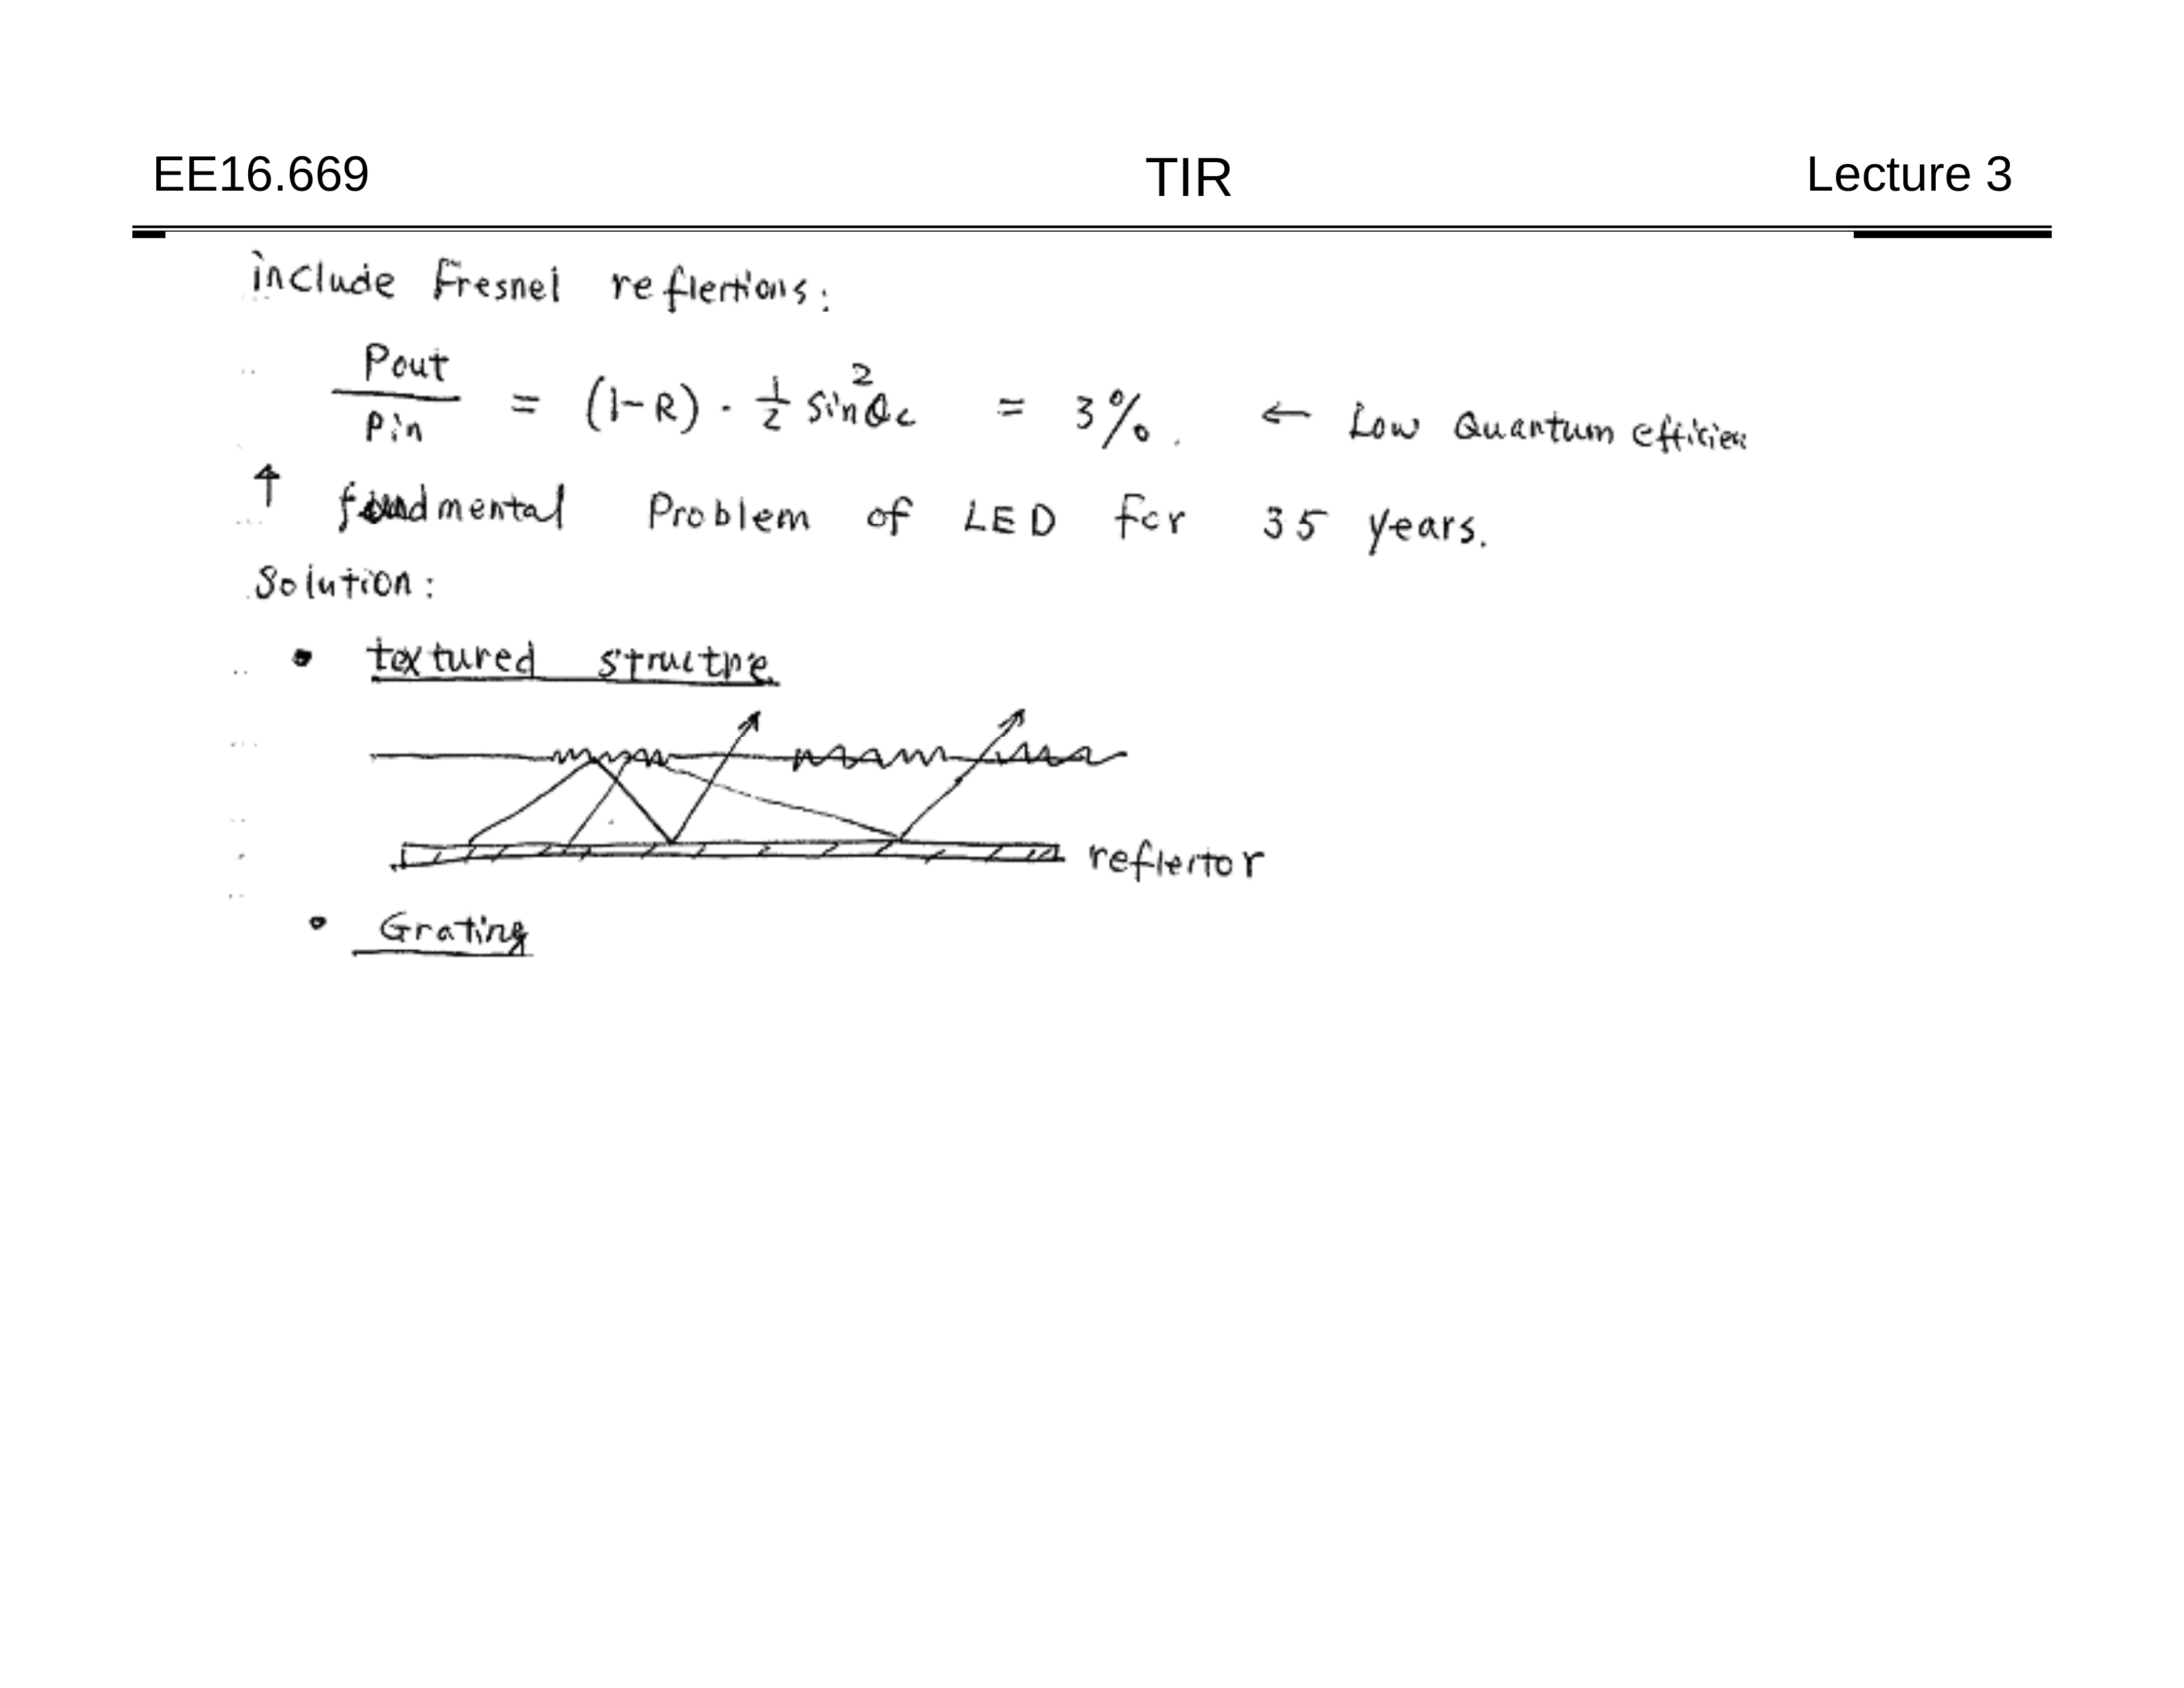 EE16.669 TIR Lecture 3
include Fresnel reflections:
Pout/Pin = (1-R) · 1/2 sin²θc = 3%. ← Low Quantum efficien
↑ fundmental Problem of LED for 35 years.
Solution:
• textured structure
reflector
• Grating